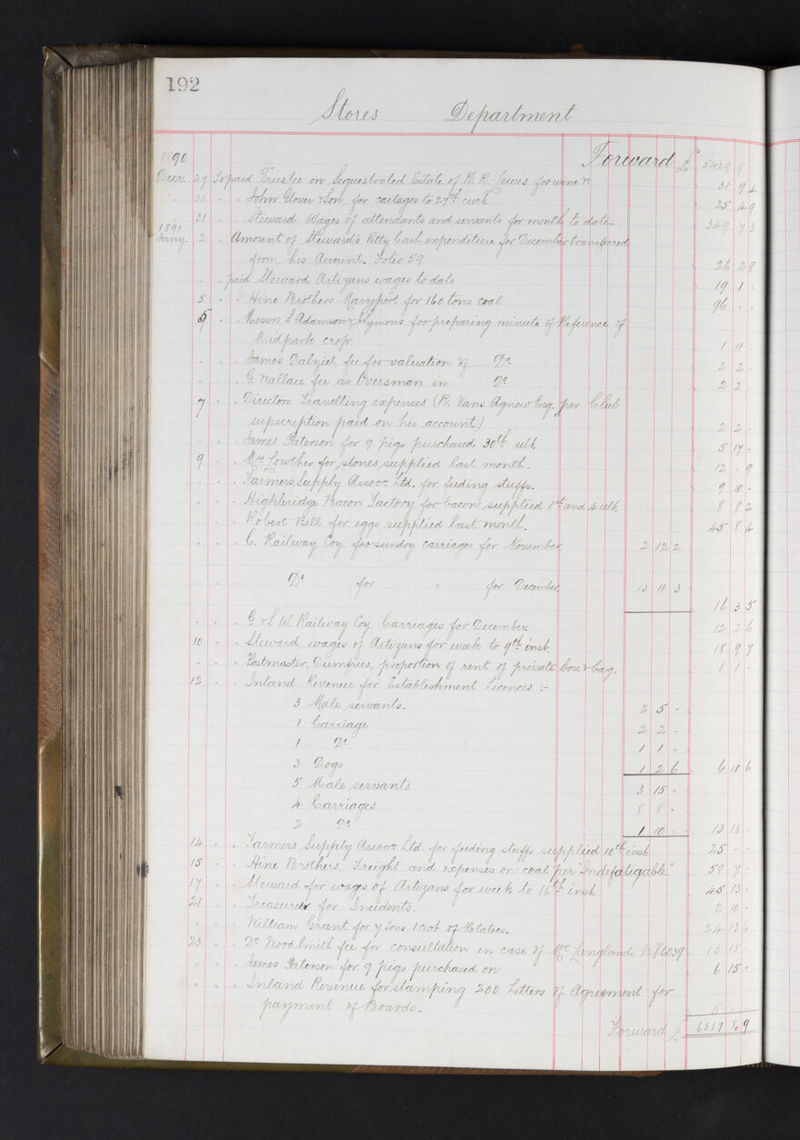 192
Stores Department
1890 Forward £ 9
Decr. 27 To paid Trustee on Sequestrated Estate of R. R. Lewis for wine &c 31 9 4
30 John Glover & Son, for cartages to 27th curt 25 4 9
31 Steward, Wages of attendants and servants for month to date 349 7 3
1891
Jany. 2 Amount of Steward's Petty Cash expenditure for December transferred
from his Account. Folio 59 26 2 8
paid Steward Artizans wages to date 19 1 -
5 Hine Brothers Maryport for 160 tons coal 96 - -
Messrs Adamson & Symons for preparing minute of Reference of
Midpark crop 1 11 -
James Dalziel, fee for valuation of Do 2 2 -
G. Wallace fee as Oversman in Do 2 2 -
7 Directors Travelling expenses (R. Vans Agnew Esq. per Club
supscription paid on his account) 2 2 -
James Paterson for 9 pigs purchased 30th ult. 5 17 -
9 Lowther for stones supplied last month. 12 - 9
Farmers Supply Assocn Ltd. for feeding stuffs. 9 10 -
Highbridge Bacon Factory for bacon supplied 1st and 4 ult. 8 8 2
Robert Bell for eggs supplied last month. 45 8 4
C. Railway Coy. for sundry carriages for November 2 12 2
Do for for December 13 11 3
16 3 5
G & S W Railway Coy. Carriages for December 12 2 6
10 Steward, wages of Artizans for week to 9th inst. 18 9 7
Postmaster, Dumfries, proportion of rent of private box & bag. 1 1 -
12 Inland Revenue for Establishment Licences :-
3 Male servants. 2 5 -
1 Carriage 2 2 -
1 Do 1 1 -
3 Dogs 1 2 6 6 10 6
5 Male servants 3 15 -
4 Carriages 8 8 -
2 Do 1 10 - 13 13 -
14 Farmers Supply Assocn Ltd. for feeding stuffs supplied 10th inst. 25 - -
15 Hine Brothers, Freight and expenses on coal per "Indefatigable" 58 7 -
17 Steward for wages of Artizans for week to 16th inst. 45 13 -
21 Treasurer for Incidents. 2 10 -
William Grant for 7 tons 1 cwt of Potatoes. 24 13 6
23 Dr Wood Smith fee for consultation in case of Langlands 6039 15 18 -
James Paterson for 9 pigs purchased on 6 15 -
Inland Revenue for stamping 200 Letters of Agreement for
payment of Boards. 5 - -
Forward £ 6317 9